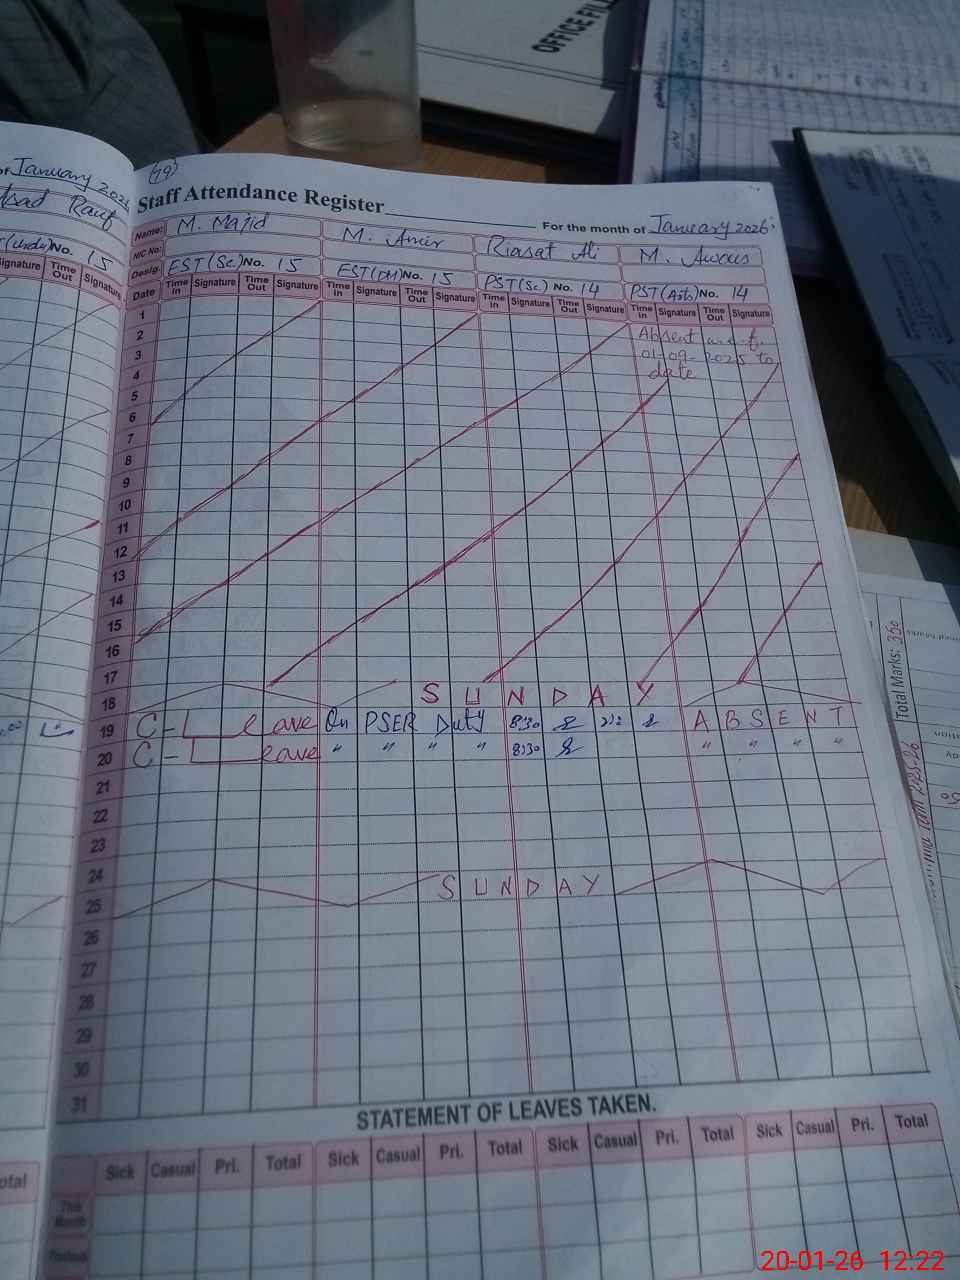 OFFICE FILE
January 2026
Rauf
No. 15
Signature Time Out Signature
(79)
Staff Attendance Register
For the month of January 2026
Name: M. Majid M. Amir Riasat Ali M. Awais
NIC No:
Desig. EST (Sc.) No. 15 EST (DM) No. 15 PST (Sc.) No. 14 PST (Arts) No. 14
Date Time In Signature Time Out Signature Time In Signature Time Out Signature Time In Signature Time Out Signature Time In Signature Time Out Signature
1
2 Absent
3 01-09-2025 to
4 date
5
6
7
8
9
10
11
12
13
14
15
16
17
18 SUNDAY
19 C-Leave On PSER Duty 8:30 ABSENT
20 C-Leave " " " " 8:30 " " " "
21
22
23
24
25 SUNDAY
26
27
28
29
30
31
STATEMENT OF LEAVES TAKEN.
Sick Casual Pri. Total Sick Casual Pri. Total Sick Casual Pri. Total Sick Casual Pri. Total
This Month
Total Marks: 350
20-01-26 12:22